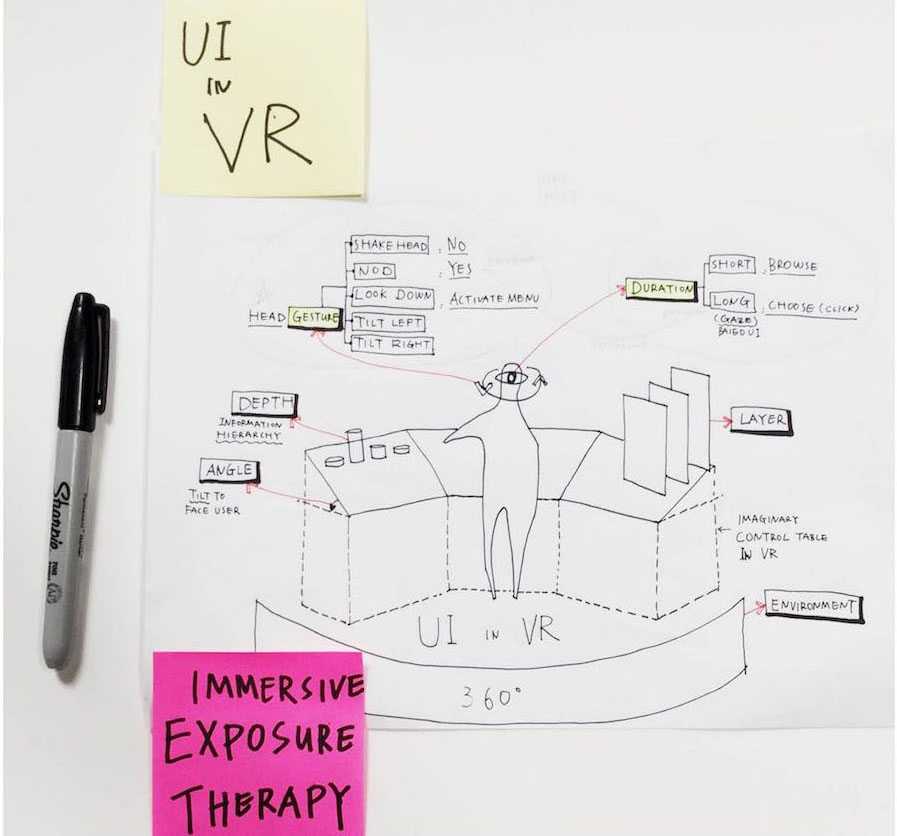 UI
IN
VR
SHAKE HEAD : NO
NOD : YES
LOOK DOWN : ACTIVATE MENU
HEAD GESTURE
TILT LEFT
TILT RIGHT
SHORT : BROWSE
DURATION
LONG : CHOOSE (CLICK)
(GAZE)
DEPTH
INFORMATION
HIERARCHY
LAYER
ANGLE
TILT TO
FACE USER
IMAGINARY
CONTROL TABLE
IN VR
ENVIRONMENT
UI IN VR
360°
Sharpie
IMMERSIVE
EXPOSURE
THERAPY